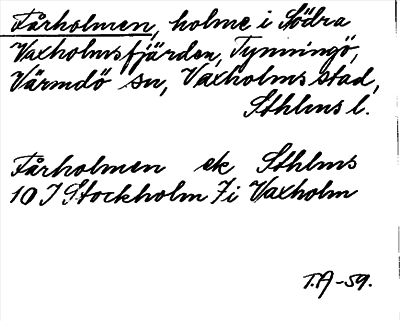 Fårholmen, holme i Södra
Vaxholmsfjärden, Tynningö,
Värmdö sn, Vaxholms stad,
Sthlms l.
Fårholmen ek Sthlms
10 I Stockholm 7i Vaxholm
T.A-59.